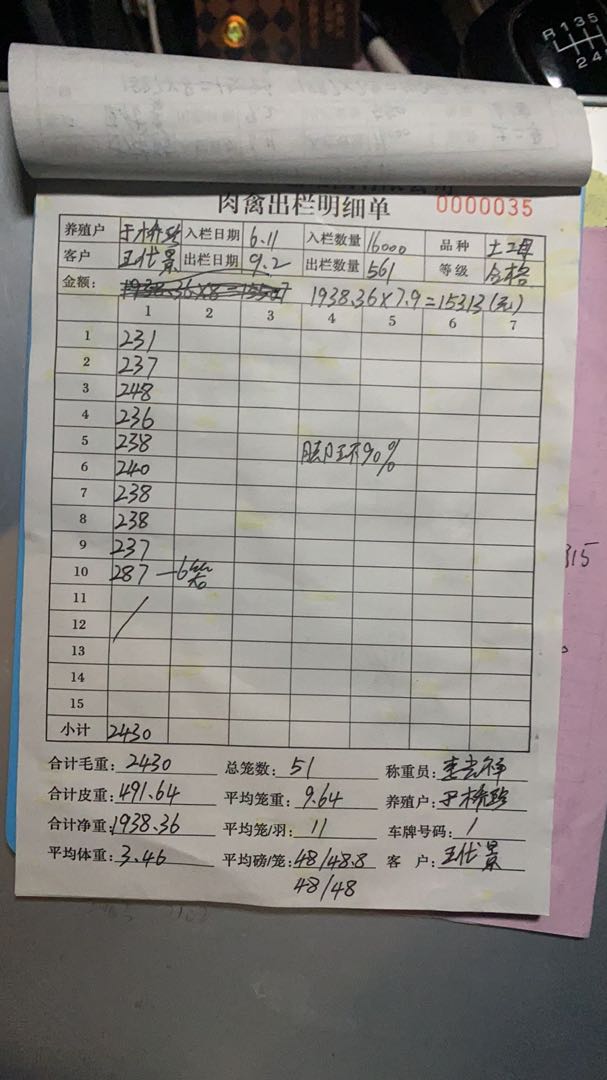 肉禽出栏明细单 0000035
养殖户 于桥珍 入栏日期 6.11 入栏数量 16000 品种 土二母
客户 王代景 出栏日期 9.2 出栏数量 561 等级 合格
金额: 1938.36×7.9=15313(元)
1 2 3 4 5 6 7
1 231
2 237
3 248
4 236
5 238 90%
6 240
7 238
8 238
9 237
10 287 —6笼
11
12
13
14
15
小计 2430
合计毛重: 2430 总笼数: 51 称重员:
合计皮重: 491.64 平均笼重: 9.64 养殖户: 于桥珍
合计净重: 1938.36 平均笼/羽: 11 车牌号码: /
平均体重: 3.46 平均磅/笼: 48/48.8 客 户: 王代景
48/48
315
R 1 3 5
2 4